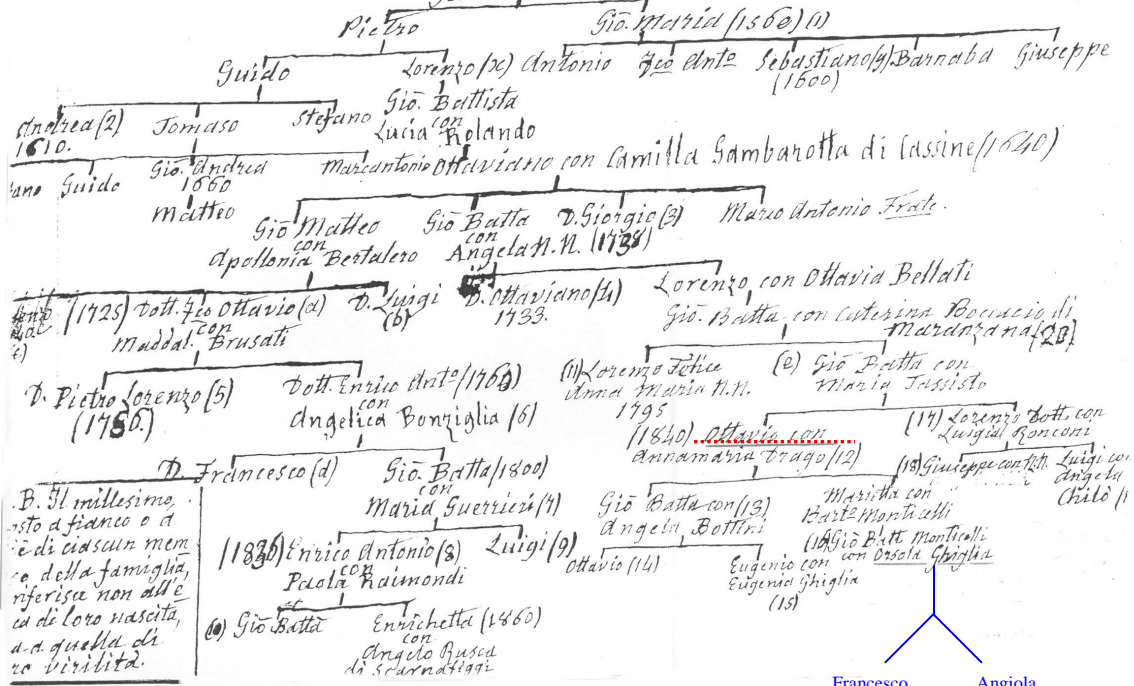 Pietro
Giõ. Maria (1560) (1)
Guido
Lorenzo (x)
Antonio
Fco Anto
Sebastiano (y)
(1600)
Barnaba
Giuseppe
Giõ. Battista
con
Lucia Rolando
Andrea (2)
1610.
Tomaso
Stefano
ano
Guido
Giõ. Andrea
1660
Matteo
Marcantonio
Ottaviano con Camilla Gambarotta di Cassine (1640)
Giõ Matteo
con
Apollonia Bertalero
Giõ Batta
con
Angela N.N.
D. Giorgio (3)
(1738)
Marco Antonio Frate.
(1725)
Dott. Fco Ottavio (a)
con
Maddal. Brusati
D. Luigi
(b)
D. Ottaviano (4)
1733.
Lorenzo con Ottavia Bellati
Giõ. Batta con Caterina Bociacio di
Maranzana (20)
D. Pietro Lorenzo (5)
(1786.)
Dott. Enrico Anto (1760)
con
Angelica Bonziglia (6)
(11) Lorenzo Felice
Anna Maria N.N.
1795
(e) Giõ Batta con
Maria Tassisto
(1840) Ottavio con
Annamaria Drago (12)
(17) Lorenzo Dott. con
Luigia Ronconi
D. Francesco (d)
Giõ. Batta (1800)
con
Maria Guerrieri (7)
Giõ Batta con (13)
Angela Bottini
Marietta con
Barto Monticelli
(18) Giuseppe con N.N.
Luigi co
Angela
Chilò (1
(1836) Enrico Antonio (8)
con
Paola Raimondi
Luigi (9)
Ottavio (14)
Eugenio con
Eugenia Ghiglia
(15)
Giõ Batt. Monticelli
con Orsola Ghiglia
(10) Giõ Batta
Enrichetta (1860)
con
Angelo Rusca
di Scarnafiggi
B. Il millesimo,
osto a fianco o a
è di ciascun mem
o della famiglia,
riferisce non all'e
ca di loro nascita,
a a quella di
ro virilità.
Francesco
Angiola